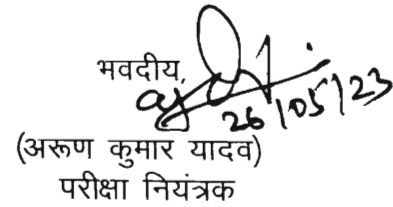 भवदीय,
26/05/23
(अरूण कुमार यादव)
परीक्षा नियंत्रक